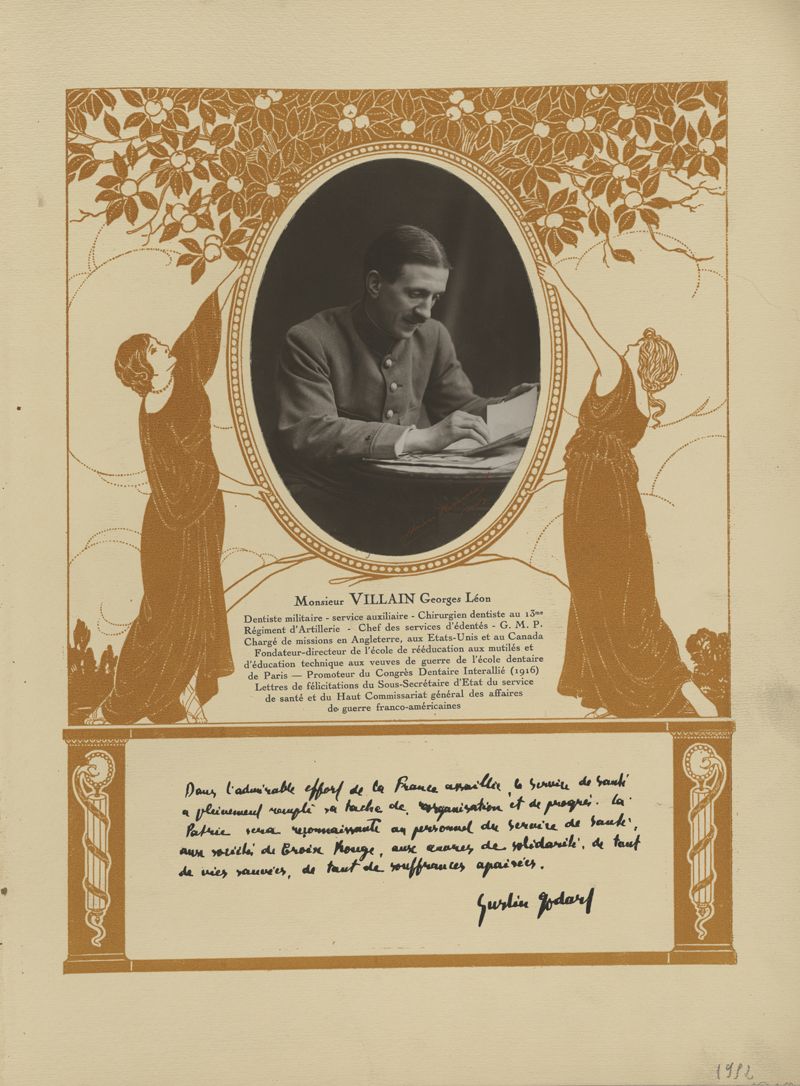 Monsieur VILLAIN Georges Léon
Dentiste militaire - service auxiliaire - Chirurgien dentiste au 13me
Régiment d'Artillerie - Chef des services d'édentés - G. M. P.
Chargé de missions en Angleterre, aux Etats-Unis et au Canada
Fondateur-directeur de l'école de rééducation aux mutilés et
d'éducation technique aux veuves de guerre de l'école dentaire
de Paris — Promoteur du Congrès Dentaire Interallié (1916)
Lettres de félicitations du Sous-Secrétaire d'Etat du service
de santé et du Haut Commissariat général des affaires
de guerre franco-américaines
Dans l'admirable effort de la France assaillie, le Service de Santé
a pleinement rempli sa tache de réorganisation et de progrès. La
Patrie sera reconnaissante au personnel du Service de Santé,
aux sociétés de Croix Rouge, aux œuvres de solidarité, de tant
de vies sauvées, de tant de souffrances apaisées.
Justin Godart
1992